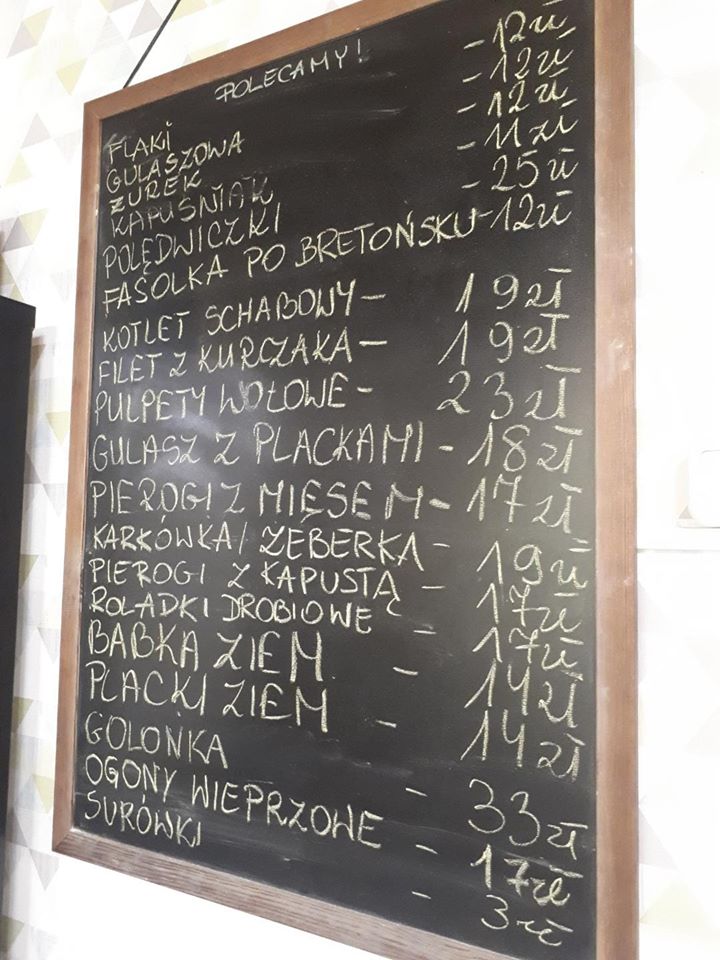 POLECAMY!
FLAKI - 12 zł
GULASZOWA - 12 zł
ŻUREK - 12 zł
KAPUŚNIAK - 11 zł
POLĘDWICZKI - 25 zł
FASOLKA PO BRETOŃSKU - 12 zł
KOTLET SCHABOWY - 19 zł
FILET Z KURCZAKA - 19 zł
PULPETY WOŁOWE - 23 zł
GULASZ Z PLACKAMI - 18 zł
PIEROGI Z MIĘSEM - 17 zł
KARKÓWKA/ ŻEBERKA - 19 zł
PIEROGI Z KAPUSTĄ - 17 zł
ROLADKI DROBIOWE - 17 zł
BABKA ZIEM - 14 zł
PLACKI ZIEM - 14 zł
GOLONKA - 33 zł
OGONY WIEPRZOWE - 17 zł
SURÓWKI - 3 zł